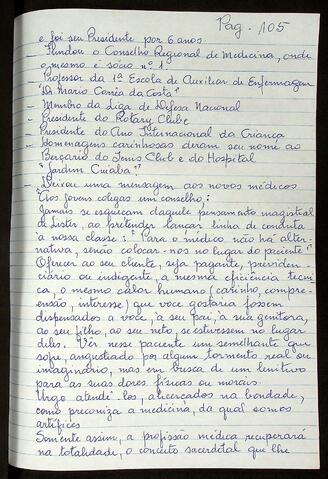 Pag. 105
e foi seu Presidente por 6 anos
Fundou o Conselho Regional de Medicina, onde
o mesmo é sócio nº 1
Professor da 1ª Escola de Auxiliar de Enfermagem
"Dr Mario Corrêa da Costa"
- Membro da Liga de Defesa Nacional
- Presidente do Rotary Clube
Presidente do Ano Internacional da Criança
- Homenagens carinhosas deram seu nome ao
Berçario do Tenis Club e do Hospital
"Jardim Cuiabá"
- Deixou uma mensagem aos novos médicos
"Aos jovens colegas um conselho:
Jamais se esqueçam daquele pensamento magistral
de Lister, ao pretender lançar linha de conduta
à nossa classe: "Para o médico não há alter-
nativa, senão colocar-nos no lugar do paciente"
Oferecer ao seu cliente, seja pagante, previden-
ciário ou indigente, a mesma eficiência tecni-
ca, o mesmo calor humano (carinho, compre-
ensão, interesse) que voce gostaria fossem
dispensados a voce, à seu pai, à sua genitora,
ao seu filho, ao seu neto, se estivessem no lugar
deles. Ver nesse paciente um semelhante que
sofre, angustiado por algum tormento real ou
imaginário, mas em busca de um lenitivo
para as suas dores físicas ou morais.
Urge atendê-los, alicerçados na bondade,
como preconiza a medicina, da qual somos
artífices
Somente assim, a profissão médica recuperará
na totalidade, o conceito sacerdotal que lhe